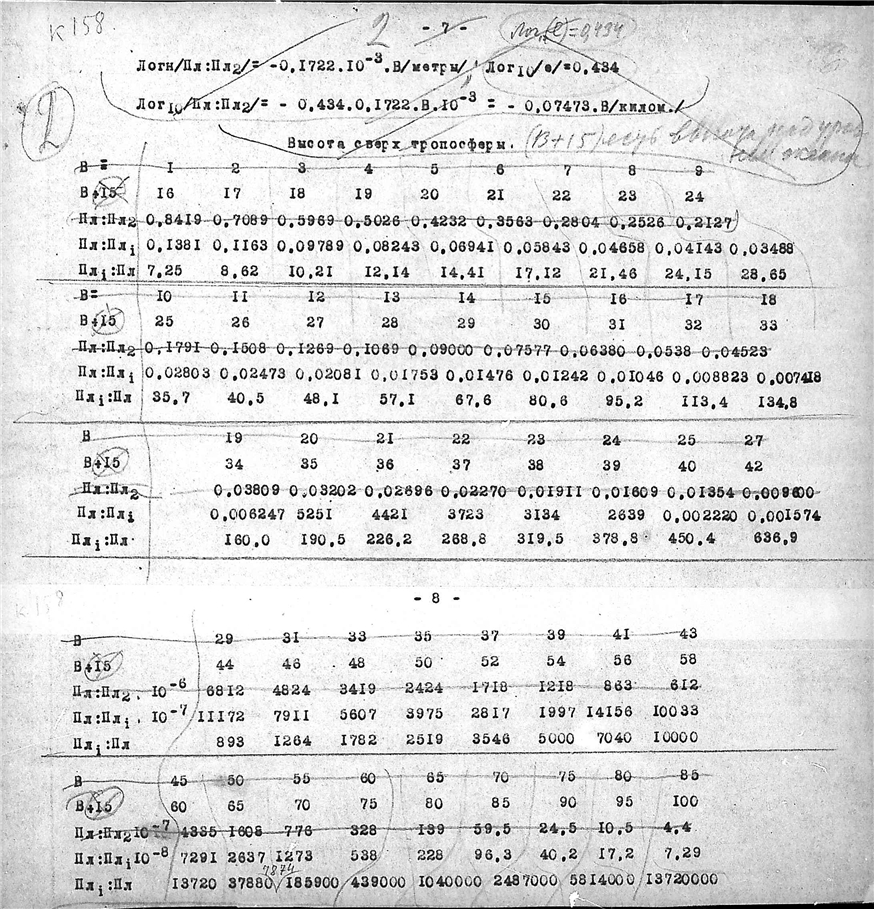 К 158. 2 - 7 - Лог₁₀(е)=0,434
Логн/Пл:Пл2/= -0,1722.10-3.В/метры/; Лог10/е/=0,434
Лог10/Пл:Пл2/= - 0,434.0,1722.В.10-3 = - 0,07473.В/килом./
2
Высота сверх тропосферы. (В+15) есть высота над уров-
нем океана
В = 1 2 3 4 5 6 7 8 9
В+15 16 17 18 19 20 21 22 23 24
Пл:Пл2 0,8419 0,7089 0,5969 0,5026 0,4232 0,3563 0,2804 0,2526 0,2127
Пл:Плi 0,1381 0,1163 0,09789 0,08243 0,06941 0,05843 0,04658 0,04143 0,03488
Плi:Пл 7,25 8,62 10,21 12,14 14,41 17,12 21,46 24,15 28,65
В= 10 11 12 13 14 15 16 17 18
В+15 25 26 27 28 29 30 31 32 33
Пл:Пл2 0,1791 0,1508 0,1269 0,1069 0,09000 0,07577 0,06380 0,0538 0,04523
Пл:Плi 0,02803 0,02473 0,02081 0,01753 0,01476 0,01242 0,01046 0,008823 0,007418
Плi:Пл 35,7 40,5 48,1 57,1 67,6 80,6 95,2 113,4 134,8
В 19 20 21 22 23 24 25 27
В+15 34 35 36 37 38 39 40 42
Пл:Пл2 0,03809 0,03202 0,02696 0,02270 0,01911 0,01609 0,01354 0,009600
Пл:Плi 0,006247 5251 4421 3723 3134 2639 0,002220 0,001574
Плi:Пл 160,0 190,5 226,2 268,8 319,5 378,8 450,4 636,9
К 158
- 8 -
В 29 31 33 35 37 39 41 43
В+15 44 46 48 50 52 54 56 58
Пл:Пл2. 10-6 6812 4824 3419 2424 1718 1218 863 612
Пл:Плi. 10-7 11172 7911 5607 3975 2817 1997 14156 10033
Плi:Пл 893 1264 1782 2519 3546 5000 7040 10000
В 45 50 55 60 65 70 75 80 85
В+15 60 65 70 75 80 85 90 95 100
Пл:Пл2 10-7 4385 1608 776 328 139 59,5 24,5 10,5 4,4
Пл:Плi 10-8 7291 2637 1273 538 228 96,3 40,2 17,2 7,29
7874
Плi:Пл 13720 37880 185900 439000 1040000 2487000 5814000 13720000